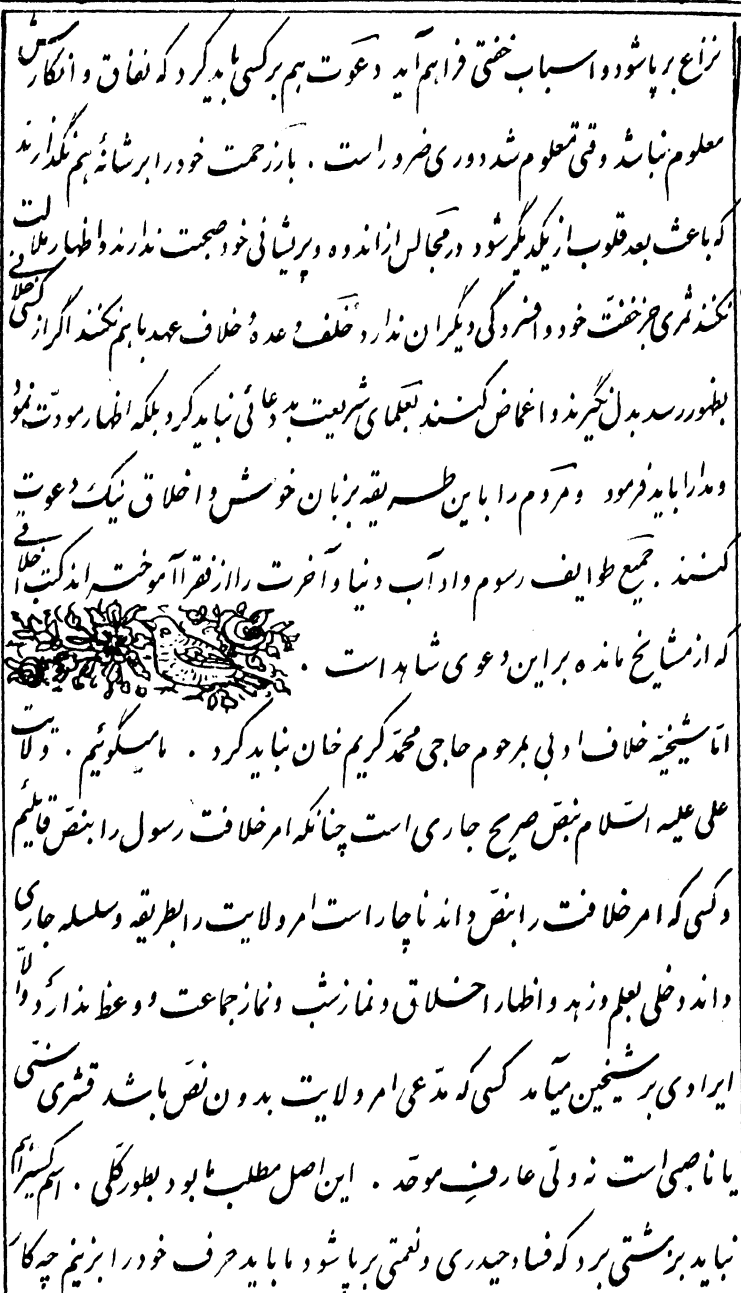 نزاع برپا شود و اسباب خفتی فراهم آید دعوت هم بر کسی باید کرد که نفاق و انکارش
معلوم نباشد وقتی معلوم شد دوری ضرور است . بار زحمت خود را بر شانهٔ هم نگذارند
که باعث بعد قلوب از یکدیگر شود در مجالس از اندوه و پریشانی خود صحبت ندارند و اظهار ملالت
نکنند ثمری جز خفت خود و افسردگی دیگران ندارد خلف وعده و خلاف عهد با هم نکنند اگر از کسی خلافی
بظهور رسد بدل نگیرند و اغماض کنند بعلمای شریعت بد دعائی نباید کرد بلکه اظهار مودّت نمود
و مدارا باید فرمود و مردم را باین طریقه بزبان خوش و اخلاق نیک دعوت
کنند . جمیع طوایف رسوم و اداب دنیا و آخرت را از فقرا آموخته اند کتب اخلاقی
که از مشایخ مانده بر این دعوی شاهد است .
امّا شیخیّه خلاف ادبی بمرحوم حاجی محمّد کریم خان نباید کرد . ما میگوئیم . ولایت
علی علیه السّلام بنصّ صریح جاری است چنانکه امر خلافت رسول را بنصّ قایلیم
و کسی که امر خلافت را بنصّ داند ناچار است امر ولایت را بطریقه و سلسله جاری
داند دخلی بعلم و زهد و اظهار اخلاق و نماز شب و نماز جماعت و وعظ ندارد و الّا
ایرادی بر شیخین میآمد کسی که مدّعی امر ولایت بدون نصّ باشد قشری سنّی
یا ناصبی است نه ولیّ عارف موحّد . این اصل مطلب ما بود بطور کلّی . اسم کسیرا هم
نباید بزشتی برد که فساد حیدری و نعمتی برپا شود ما باید حرف خود را بزنیم چه کار